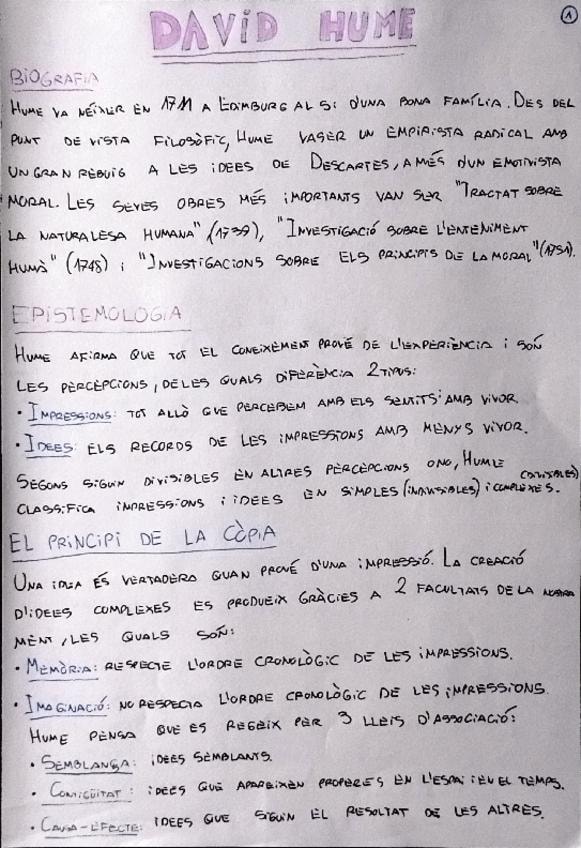 1
DAVID HUME
BIOGRAFIA
HUME VA NÉIXER EN 1711 A EDIMBURG AL SI D'UNA BONA FAMÍLIA. DES DEL
PUNT DE VISTA FILOSÒFIC, HUME VASER UN EMPIRISTA RADICAL AMB
UN GRAN REBUIG A LES IDEES DE DESCARTES, A MÉS D'UN EMOTIVISTA
MORAL. LES SEVES OBRES MÉS IMPORTANTS VAN SER "TRACTAT SOBRE
LA NATURALESA HUMANA" (1739), "INVESTIGACIÓ SOBRE L'ENTENIMENT
HUMÀ" (1748) I "INVESTIGACIONS SOBRE ELS PRINCIPIS DE LA MORAL" (1751).
EPISTEMOLOGIA
HUME AFIRMA QUE TOT EL CONEIXEMENT PROVÉ DE L'EXPERIÈNCIA I SÓN
LES PERCEPCIONS, DE LES QUALS DIFERÈNCIA 2 TIPUS:
• IMPRESSIONS: TOT ALLÒ QUE PERCEBEM AMB ELS SENTITS AMB VIVOR.
• IDEES: ELS RECORDS DE LES IMPRESSIONS AMB MENYS VIVOR.
SEGONS SIGUIN DIVISIBLES EN ALTRES PERCEPCIONS O NO, HUME
CLASSIFICA IMPRESSIONS I IDEES EN SIMPLES (INDIVISIBLES) I COMPLEXES. (DIVISIBLES)
EL PRINCIPI DE LA CÒPIA
UNA IDEA ÉS VERTADERA QUAN PROVÉ D'UNA IMPRESSIÓ. LA CREACIÓ
D'IDEES COMPLEXES ES PRODUEIX GRÀCIES A 2 FACULTATS DE LA NOSTRA
MENT, LES QUALS SÓN:
• MEMÒRIA: RESPECTE L'ORDRE CRONOLÒGIC DE LES IMPRESSIONS.
• IMAGINACIÓ: NO RESPECTA L'ORDRE CRONOLÒGIC DE LES IMPRESSIONS.
HUME PENSA QUE ES REGEIX PER 3 LLEIS D'ASSOCIACIÓ:
• SEMBLANÇA: IDEES SEMBLANTS.
• CONTIGÜITAT: IDEES QUE APAREIXEN PROPERES EN L'ESPAI I EN EL TEMPS.
• CAUSA-EFECTE: IDEES QUE SIGUIN EL RESULTAT DE LES ALTRES.